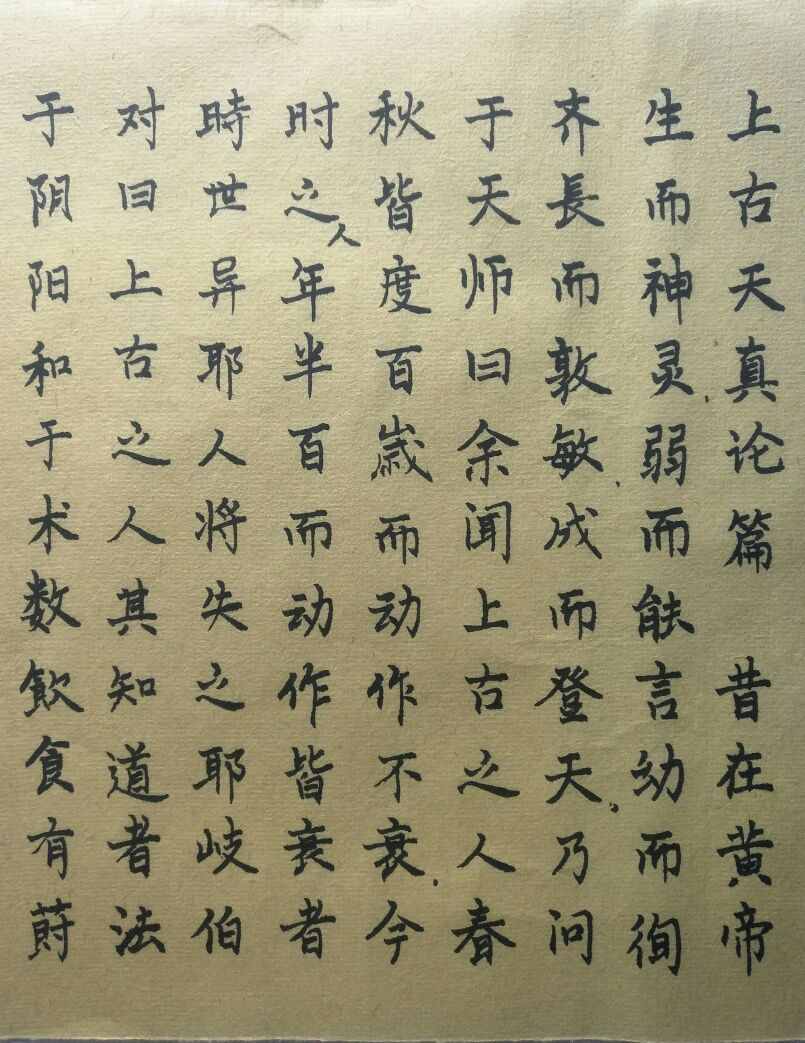 上古天真论篇 昔在黄帝
生而神灵.弱而能言幼而徇
齐長而敦敏.成而登天.乃问
于天师曰余闻上古之人春
秋皆度百歲而动作不衰.今
时之人年半百而动作皆衰者
時世异耶人将失之耶岐伯
对曰上古之人其知道者法
于阴阳和于术数飲食有蒔